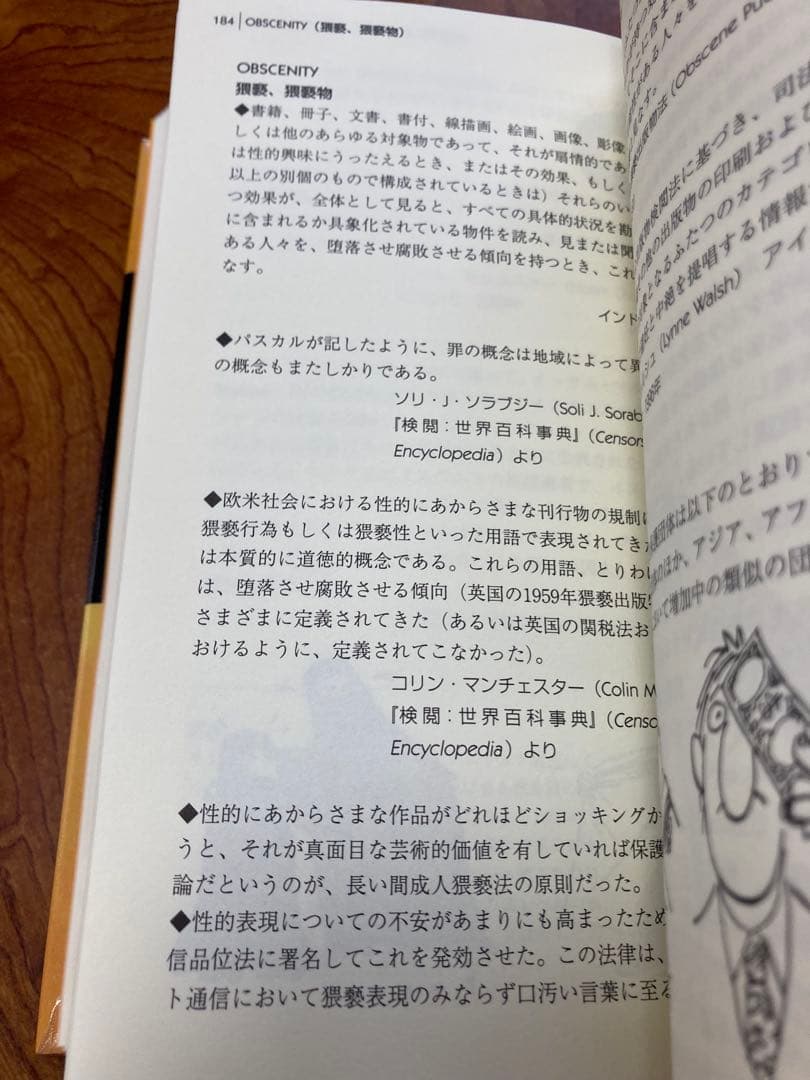 184 | OBSCENITY（猥褻、猥褻物）
OBSCENITY
猥褻、猥褻物
◆書籍、冊子、文書、書付、線描画、絵画、画像、彫像
しくは他のあらゆる対象物であって、それが扇情的であ
は性的興味にうったえるとき、またはその効果、もしく
以上の別個のもので構成されているときは）それらのい
つ効果が、全体として見ると、すべての具体的状況を勘
に含まれるか具象化されている物件を読み、見または聞
ある人々を、堕落させ腐敗させる傾向を持つとき、これ
なす。
イント
◆パスカルが記したように、罪の概念は地域によって異
の概念もまたしかりである。
ソリ・J・ソラブジー（Soli J. Sorab
『検閲：世界百科事典』（Censors
Encyclopedia）より
◆欧米社会における性的にあからさまな刊行物の規制は
猥褻行為もしくは猥褻性といった用語で表現されてきた
は本質的に道徳的概念である。これらの用語、とりわけ
は、堕落させ腐敗させる傾向（英国の1959年猥褻出版
さまざまに定義されてきた（あるいは英国の関税法お
おけるように、定義されてこなかった）。
コリン・マンチェスター（Colin M
『検閲：世界百科事典』（Censo
Encyclopedia）より
◆性的にあからさまな作品がどれほどショッキングか
うと、それが真面目な芸術的価値を有していれば保護
論だというのが、長い間成人猥褻法の原則だった。
◆性的表現についての不安があまりにも高まったため
信品位法に署名してこれを発効させた。この法律は、
ト通信において猥褻表現のみならず口汚い言葉に至る
がある人々を
見なす。
出版物法（Obscene Pu
検閲法に基づき、司法
の他の出版物の印刷およ
となるふたつのカテゴ
と中絶を提唱する情報
シュ（Lynne Walsh） アイ
団体は以下のとおり
のほか、アジア、アフ
いて増加中の類似の団